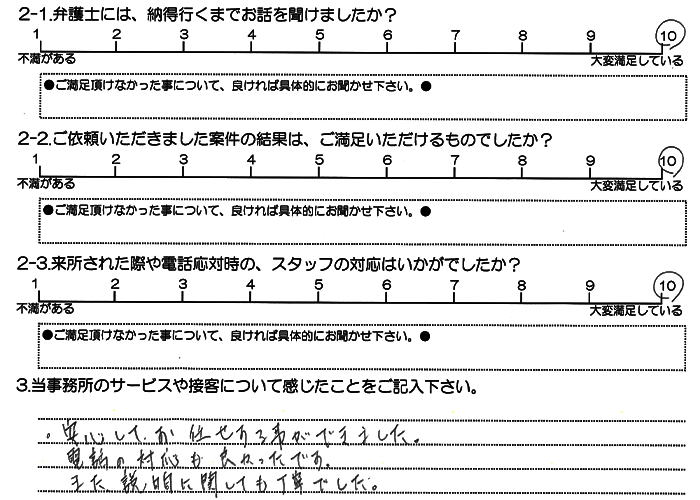 2-1.弁護士には、納得行くまでお話を聞けましたか？
1 2 3 4 5 6 7 8 9 10
不満がある 大変満足している
●ご満足頂けなかった事について、良ければ具体的にお聞かせ下さい。●
2-2.ご依頼いただきました案件の結果は、ご満足いただけるものでしたか？
1 2 3 4 5 6 7 8 9 10
不満がある 大変満足している
●ご満足頂けなかった事について、良ければ具体的にお聞かせ下さい。●
2-3.来所された際や電話応対時の、スタッフの対応はいかがでしたか？
1 2 3 4 5 6 7 8 9 10
不満がある 大変満足している
●ご満足頂けなかった事について、良ければ具体的にお聞かせ下さい。●
3.当事務所のサービスや接客について感じたことをご記入下さい。
。安心して、お任せする事ができました。
電話の対応も良かったです。
また、説明に関しても丁寧でした。